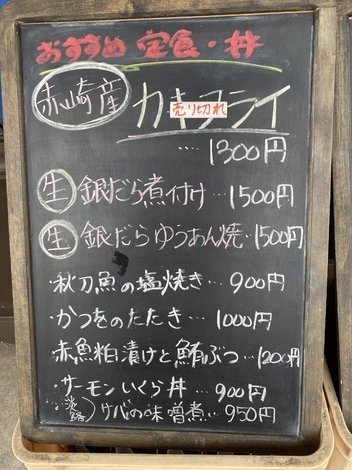 おすすめ 定食・丼
赤崎産 カキフライ
売り切れ
… 1300円
生 銀だら煮付け … 1500円
生 銀だらゆうあん焼 … 1500円
・秋刀魚の塩焼き … 900円
・かつをのたたき … 1000円
・赤魚粕漬けと鮪ぶつ … 1200円
・サーモンいくら丼 … 900円
・サバの味噌煮 … 950円